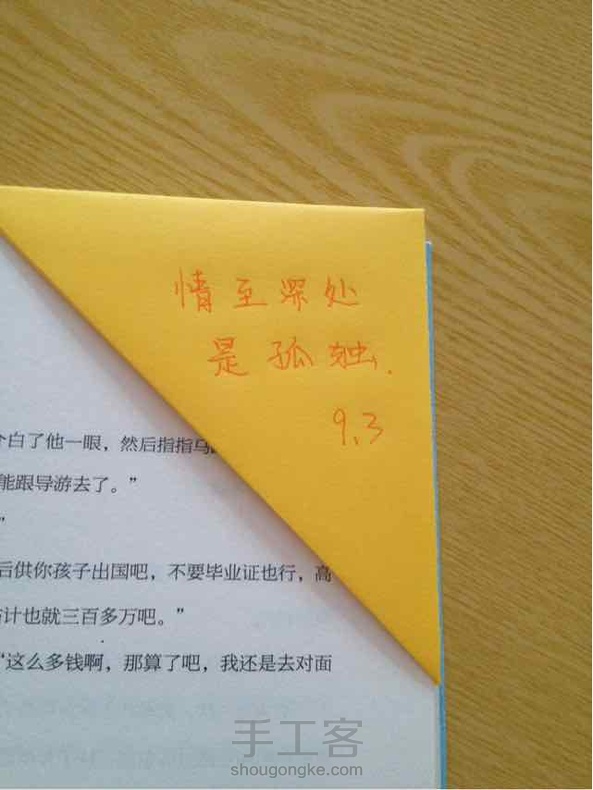 情至深处
是孤独.
9.3
个白了他一眼，然后指指乌
能跟导游去了。”
”
后供你孩子出国吧，不要毕业证也行，高
估计也就三百多万吧。”
“这么多钱啊，那算了吧，我还是去对面
手工客
shougongke.com